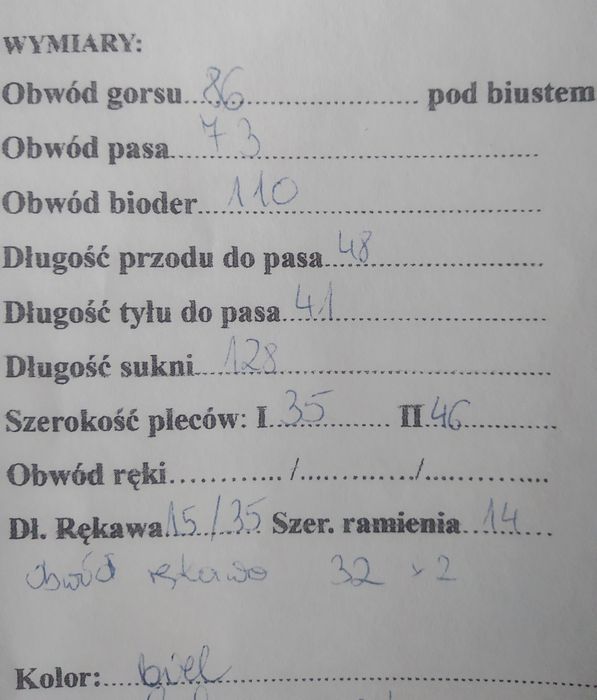 WYMIARY:
Obwód gorsu..86.................... pod biustem
Obwód pasa...73...............................
Obwód bioder...110...............................
Długość przodu do pasa..48......................
Długość tyłu do pasa..41..........................
Długość sukni...128...............................
Szerokość pleców: I..35......... II 46............
Obwód ręki............../................/................
Dł. Rękawa 15/35 Szer. ramienia...14.....
obwód rękawa 32 x 2
Kolor:....biel....................................